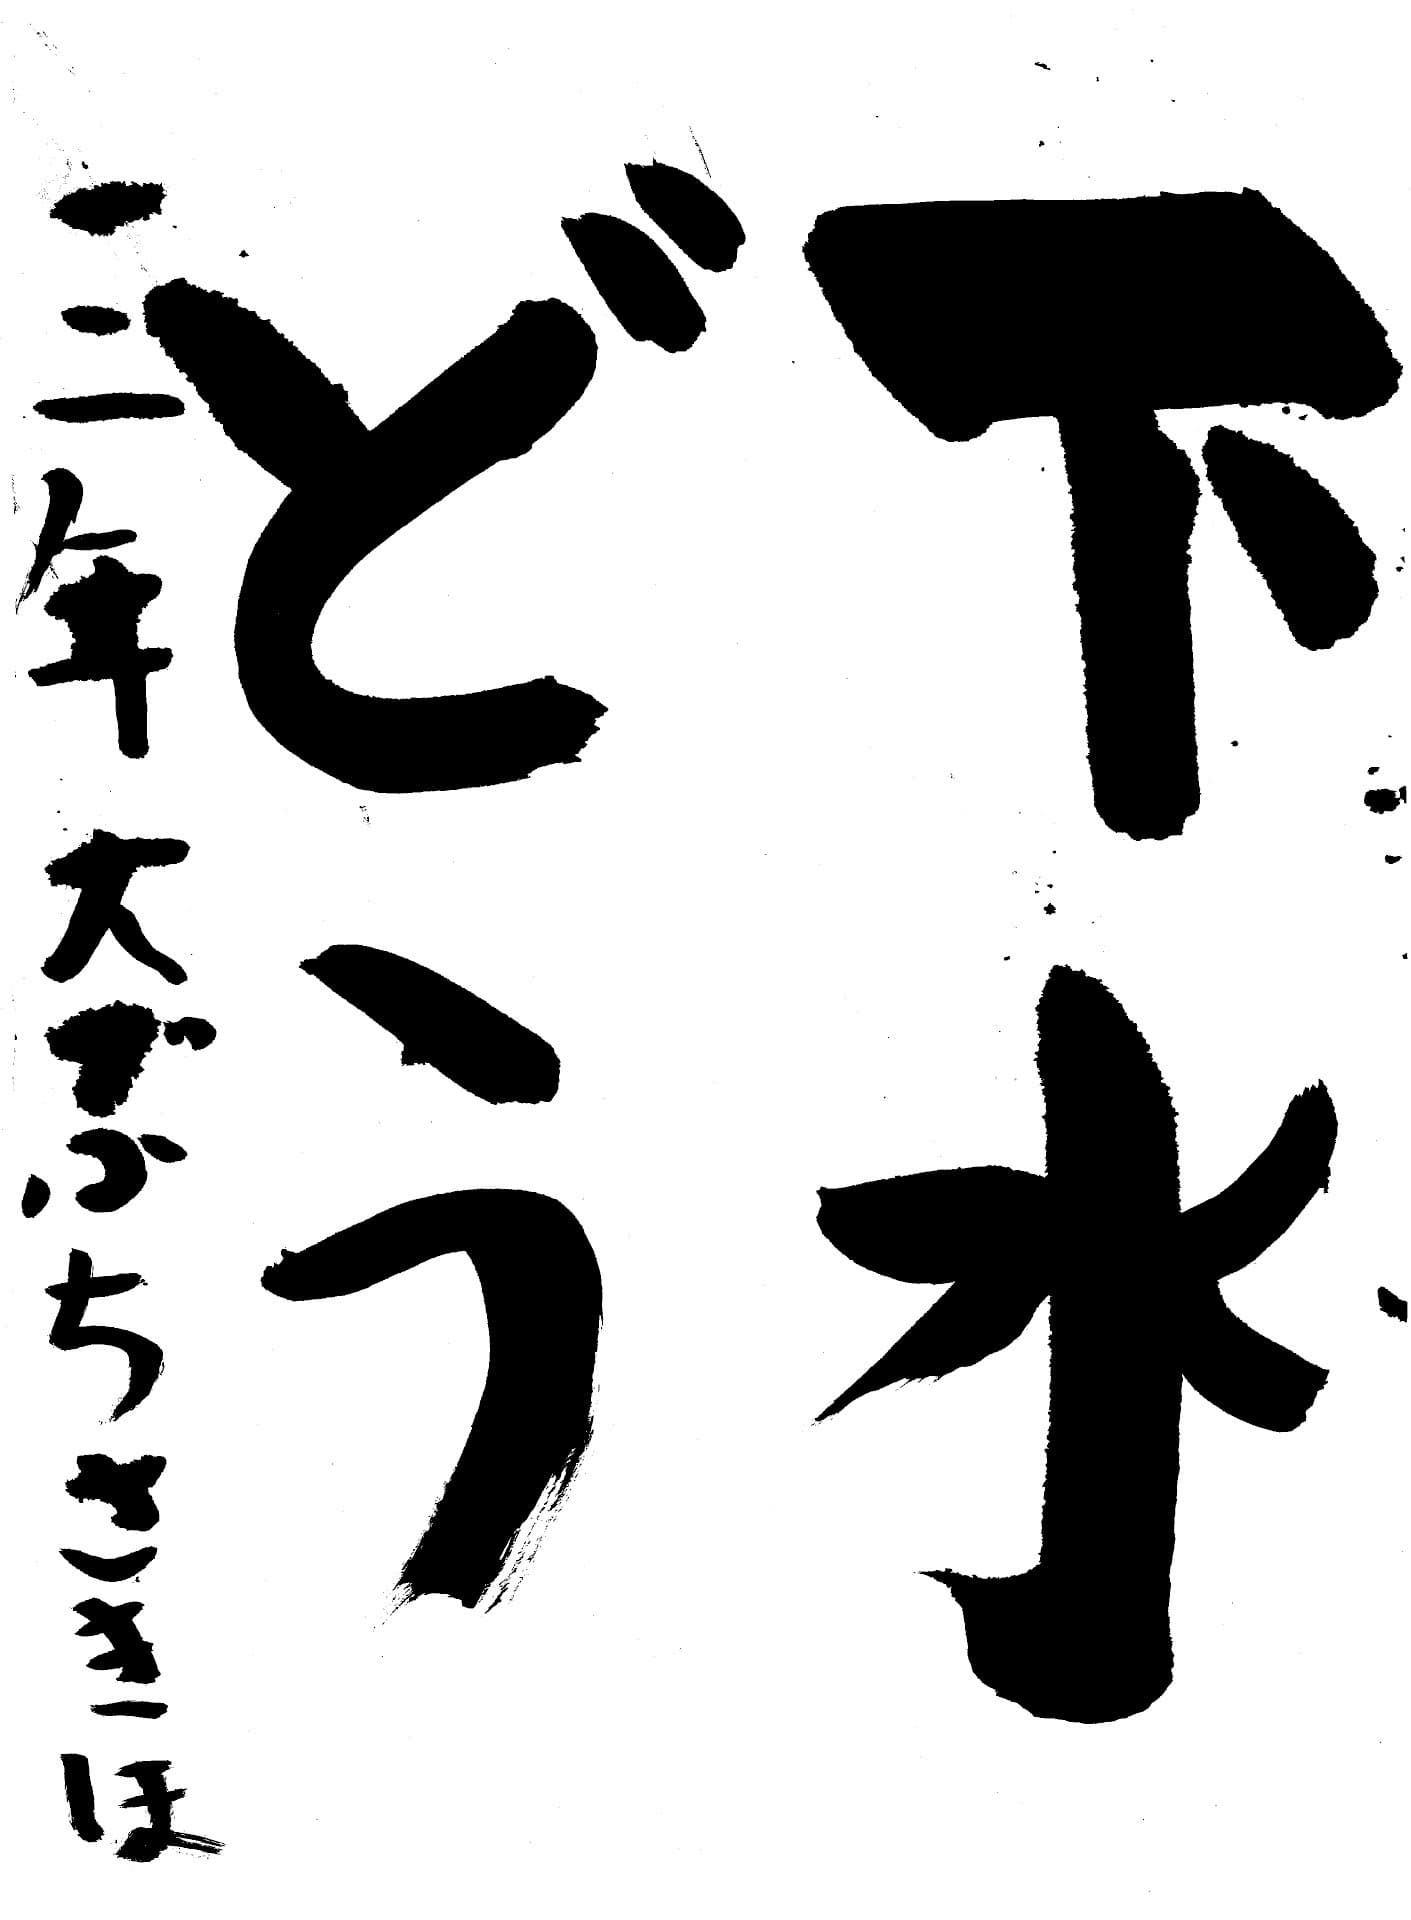 下水
どう
三年 大でぶちさきほ